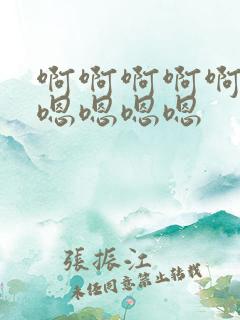 啊啊啊啊啊
嗯嗯嗯嗯
張振江
未経同意禁止轉載